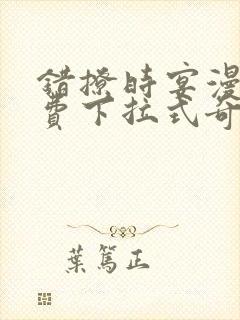 錯撩時宴漫
費下拉式奇
葉篤正